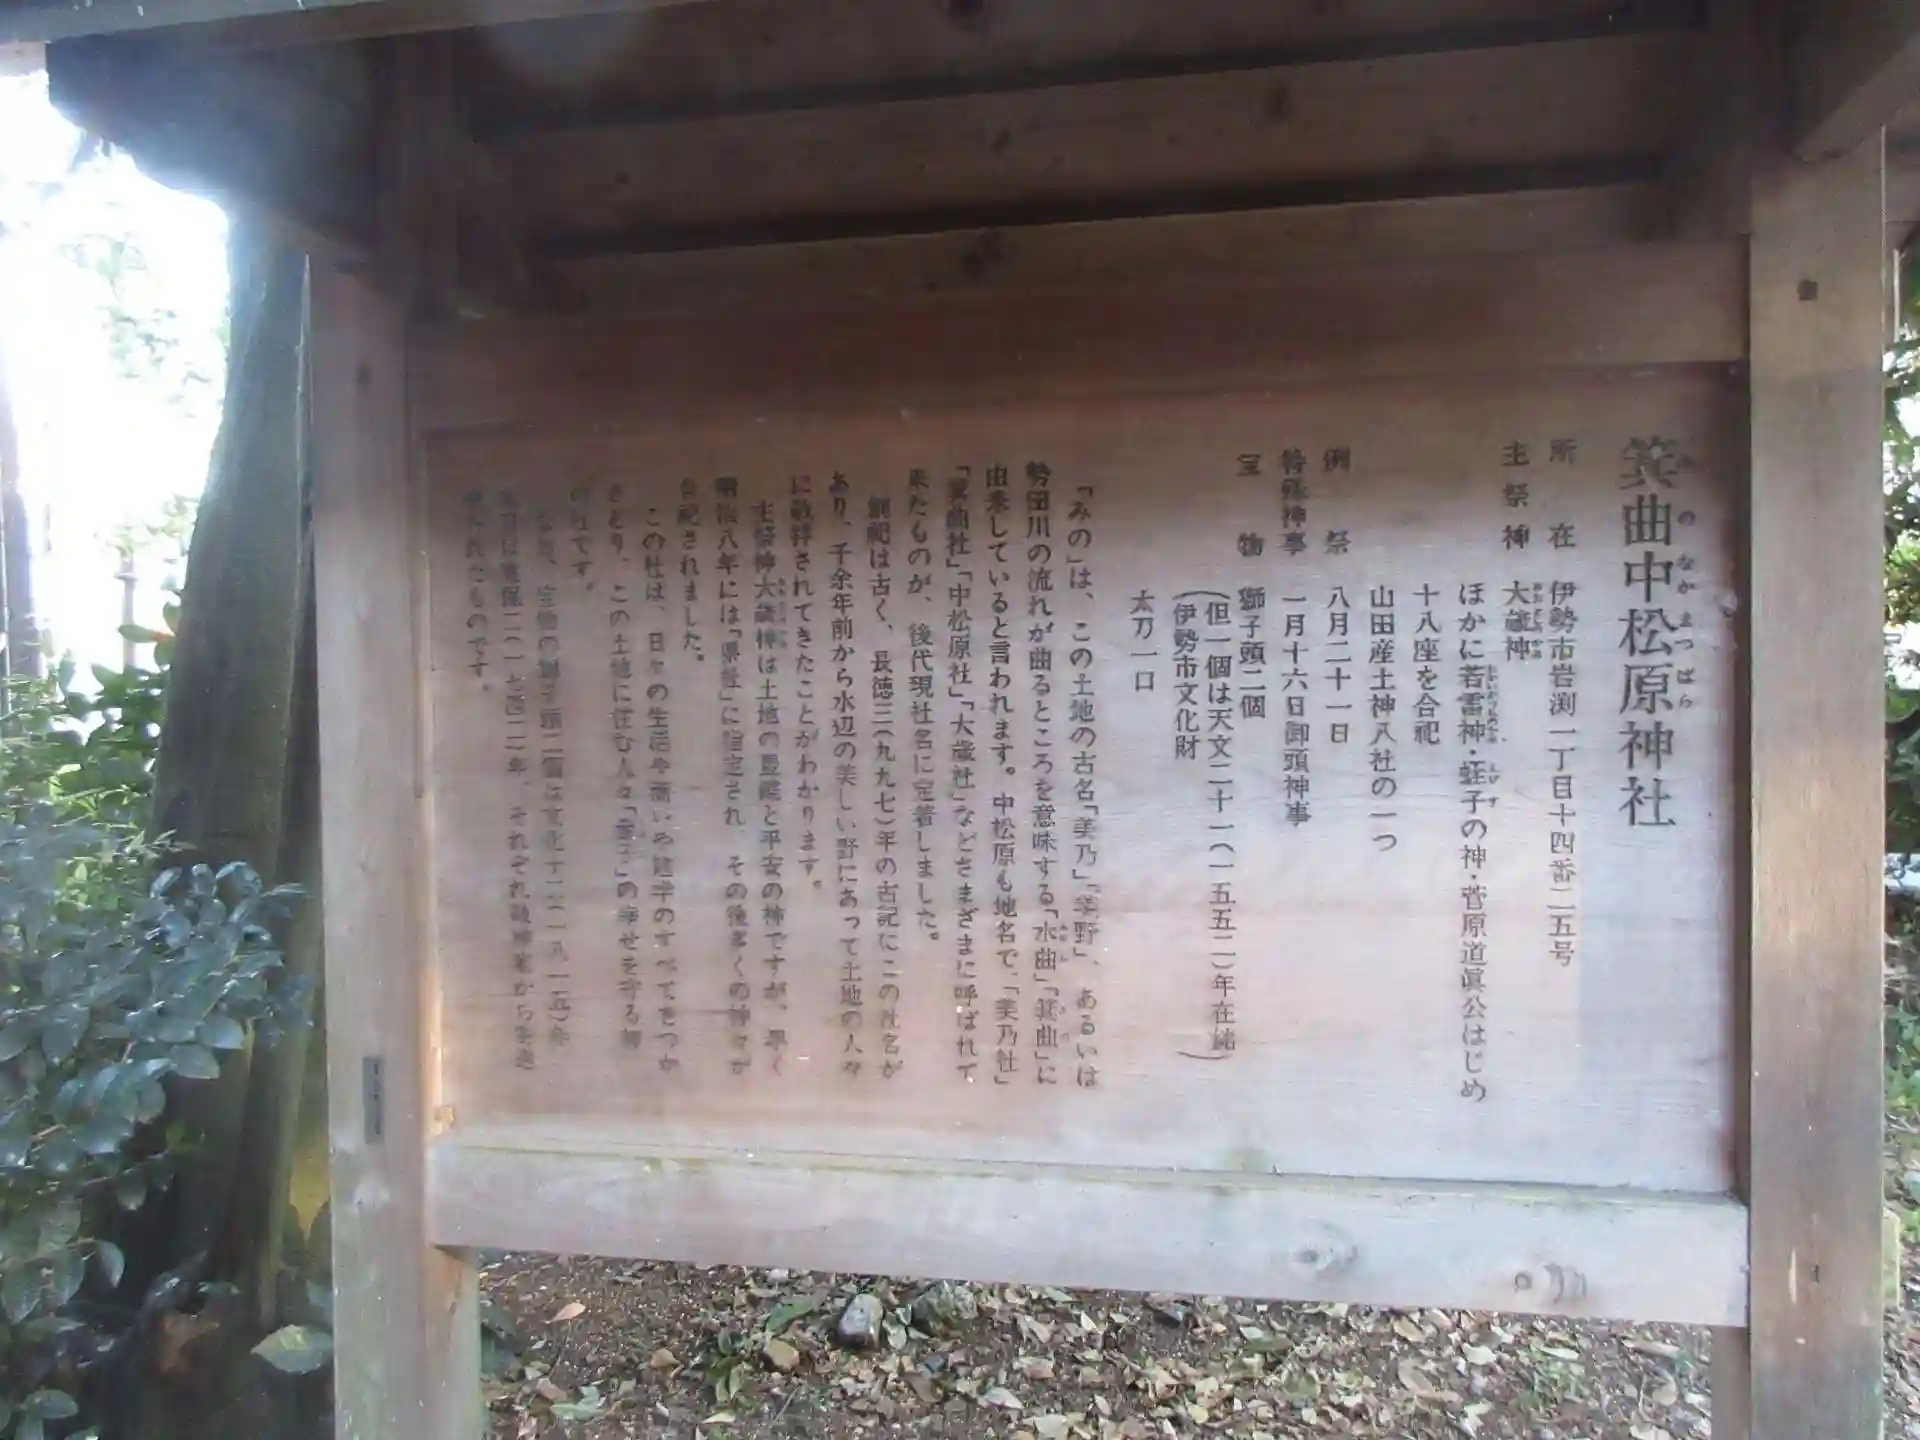 箕曲中松原神社
みのなかまつばら
所在 伊勢市岩渕一丁目十四番二五号
主祭神 大歳神
ほかに若雷神・蛭子の神・菅原道眞公はじめ
十八座を合祀
山田産土神八社の一つ
例祭 八月二十一日
特殊神事 一月十六日御頭神事
宝物 獅子頭二個
(但一個は天文二十一(一五五二)年在銘
伊勢市文化財)
太刀一口
「みの」は、この土地の古名「美乃」「美野」、あるいは
勢田川の流れが曲るところを意味する「水曲」「箕曲」に
由来していると言われます。中松原も地名で、「美乃社」
「箕曲社」「中松原社」「大歳社」などさまざまに呼ばれて
来たものが、後代現社名に定着しました。
創祀は古く、長徳三(九九七)年の古記にこの社名が
あり、千余年前から水辺の美しい野にあって土地の人々
に敬拝されてきたことがわかります。
主祭神大歳神は土地の豊穣と平安の神ですが、早く
明治八年には「県社」に指定され、その後多くの神々が
合祀されました。
この社は、日々の生活や商いや進学のすべてをつか
さどり、この土地に住む人々「産子」の幸せを守る御
社です。
なお、宝物の獅子頭二個は文化十二(一八一五)年
太刀は寛保二(一七四二)年、それぞれ
されたものです。